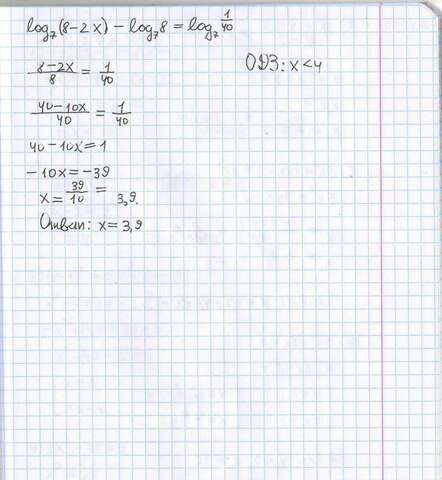 log₇(8-2x) - log₇8 = log₇ 1/40
ОДЗ: x<4
8-2x/8 = 1/40
40-10x/40 = 1/40
40-10x=1
-10x=-39
x= 39/10 = 3,9.
Ответ: x=3,9